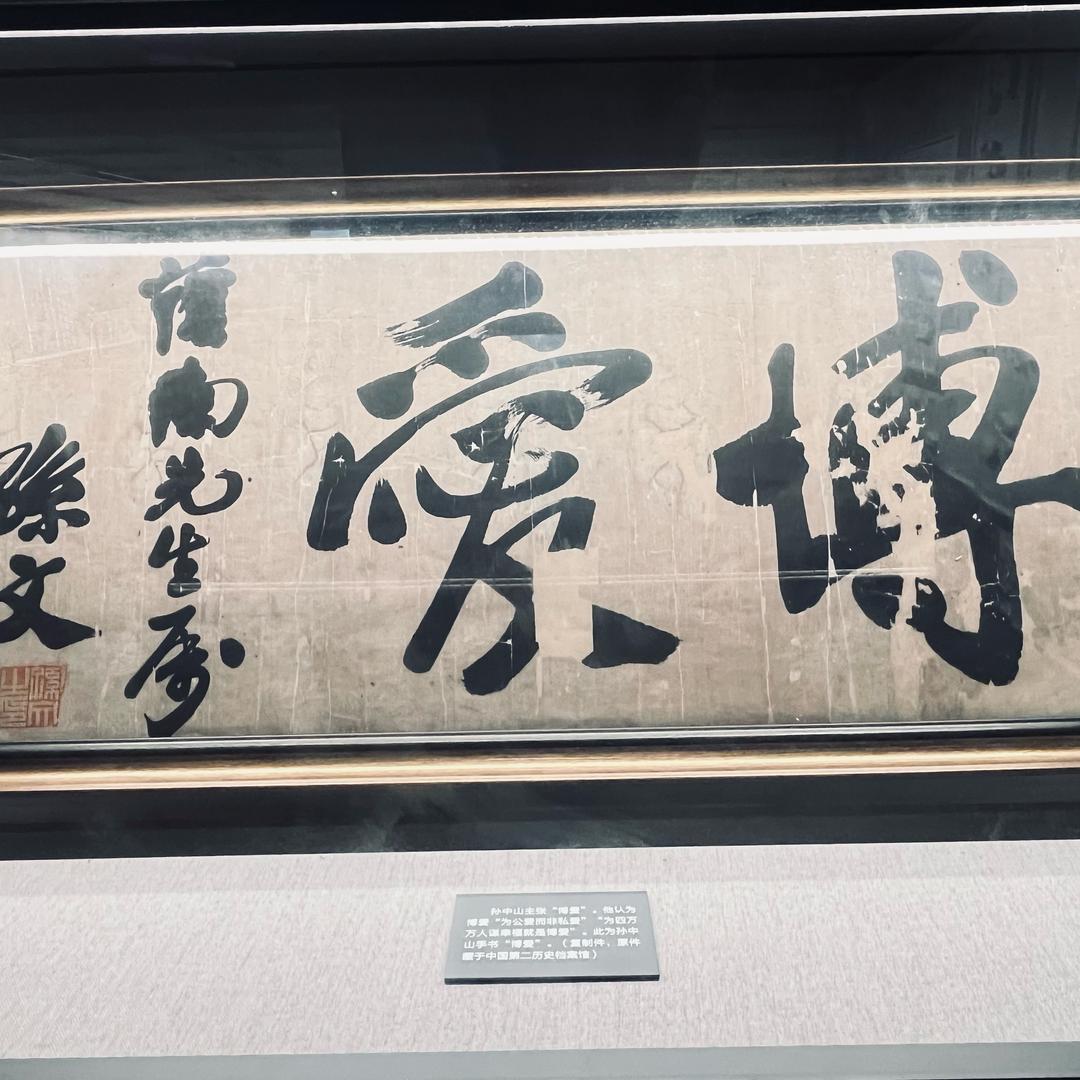 博愛
南先生属
孫文
孙中山主张“博爱”。他认为
博爱“为公爱而非私爱”“为四万
万人谋幸福就是博爱”。此为孙中
山手书“博爱”。（复制件，原件
藏于中国第二历史档案馆）